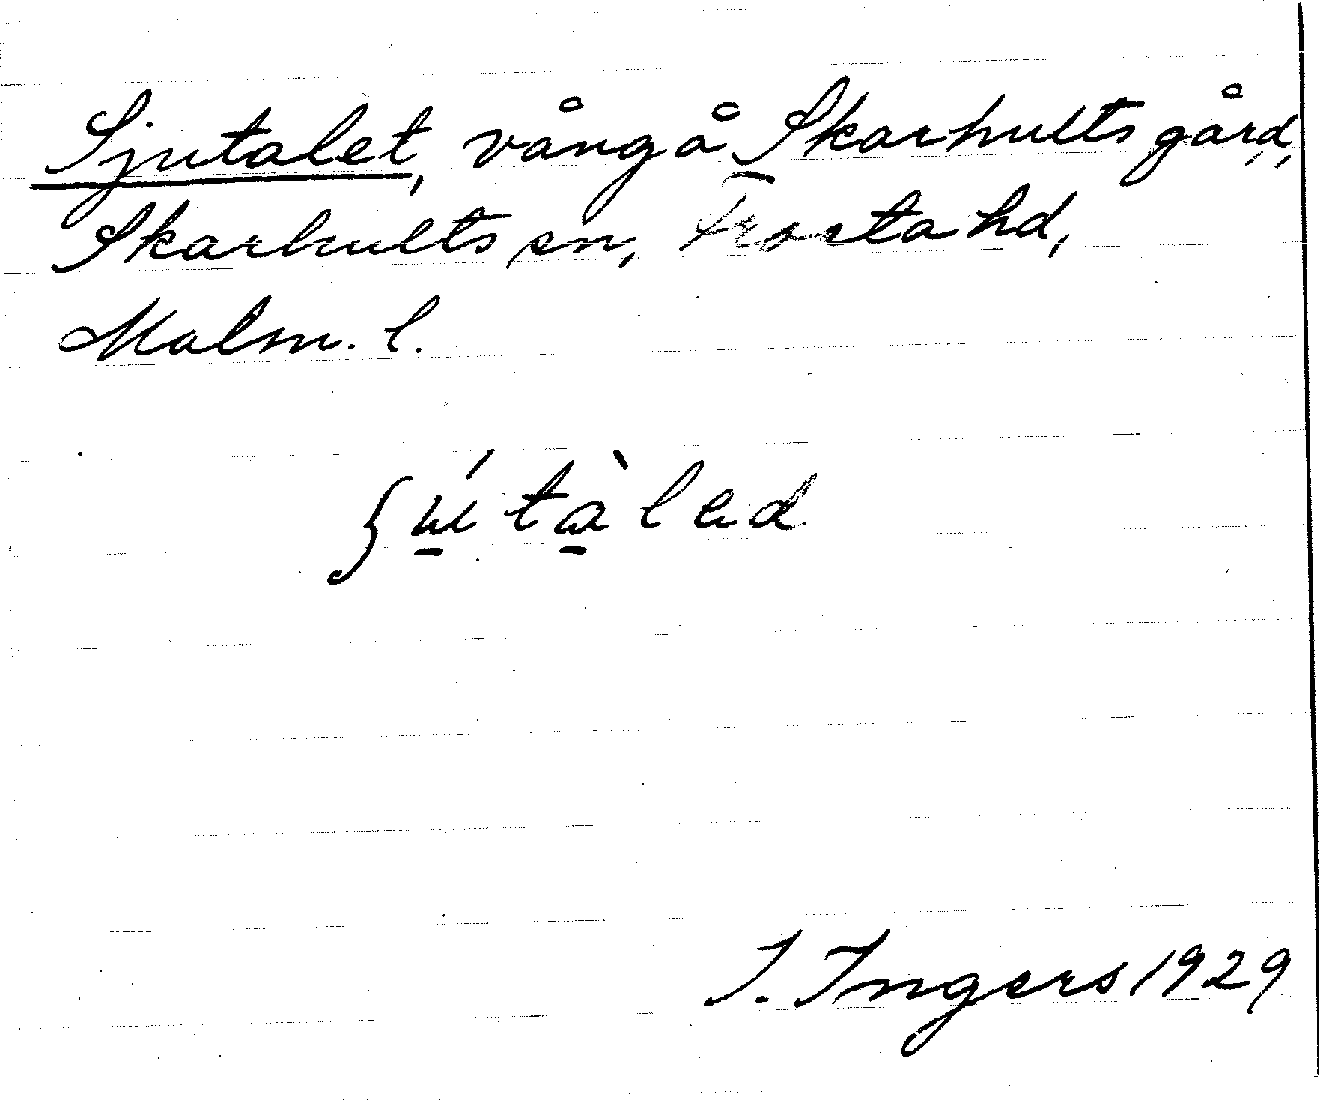 Sjutalet, vång å Skarhults gård,
Skarhults sn, Frosta hd,
Malm. l.
ʃútàləd
I. Ingers 1929